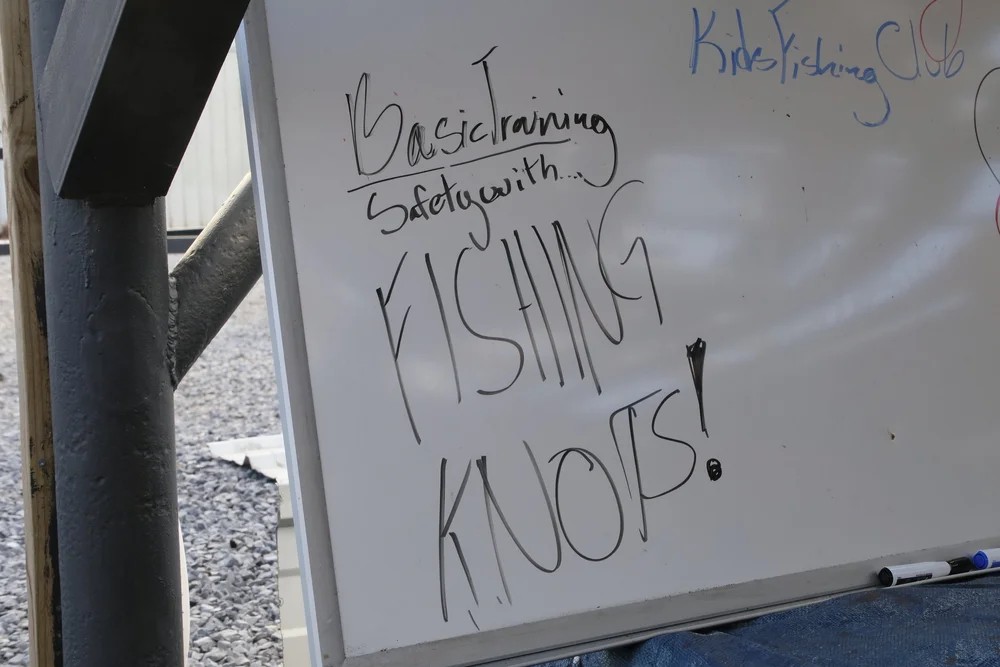 Kids Fishing Club
Basic Training
Safety with...
FISHING
KNOTS!